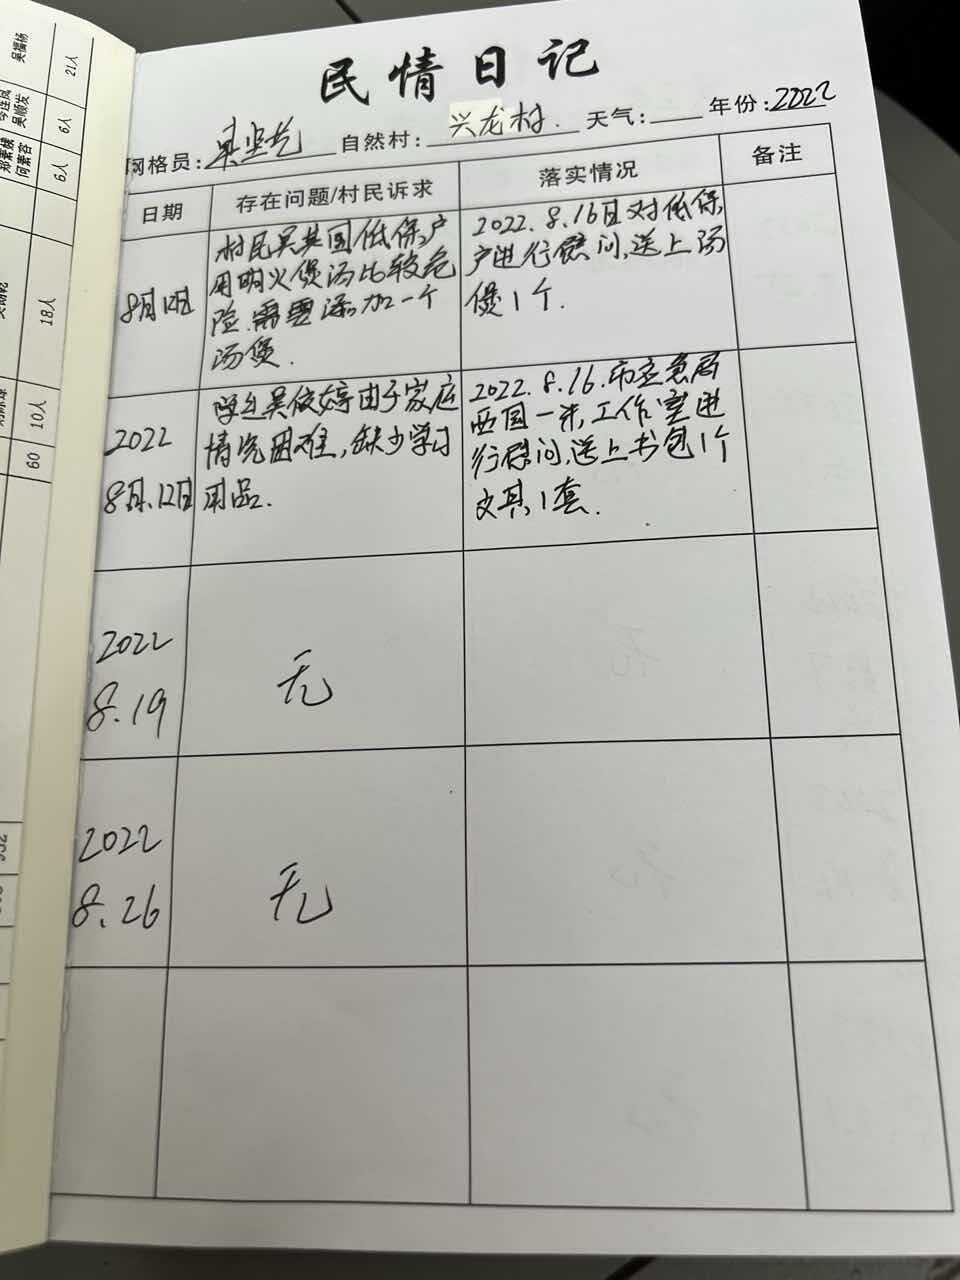 民情日记
网格员: 自然村: 兴龙村. 天气: 年份: 2022
日期 存在问题/村民诉求 落实情况 备注
8月12日
村民吴其国低保户
用明火煲汤比较危
险.需要添加一个
汤煲.
2022.8.16日对低保
户进行慰问,送上汤
煲1个.
2022
8月.12日
学生吴俊婷由于家庭
情况困难,缺少学习
用品.
2022.8.16.市应急局
一米,工作室进
行慰问,送上书包1个
文具1套.
2022
8.19
无
2022
8.26
无
吴福杨
21人
吴顺发
6人
郑素槟
何素容
6人
18人
10人
60
932